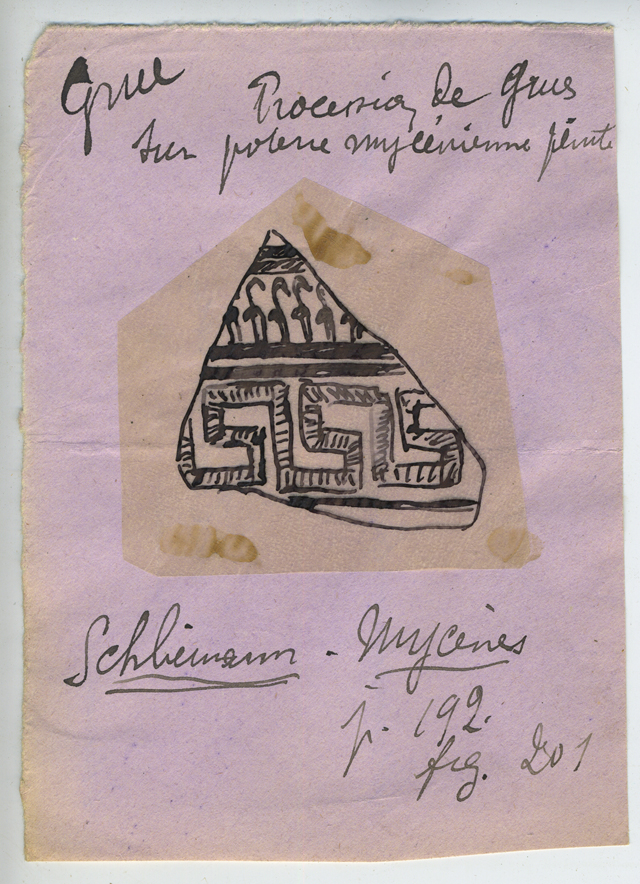 Grue
Procession de Grues
Sur poterie mycénienne peinte
Schliemann - Mycènes
p. 192.
fig. 201